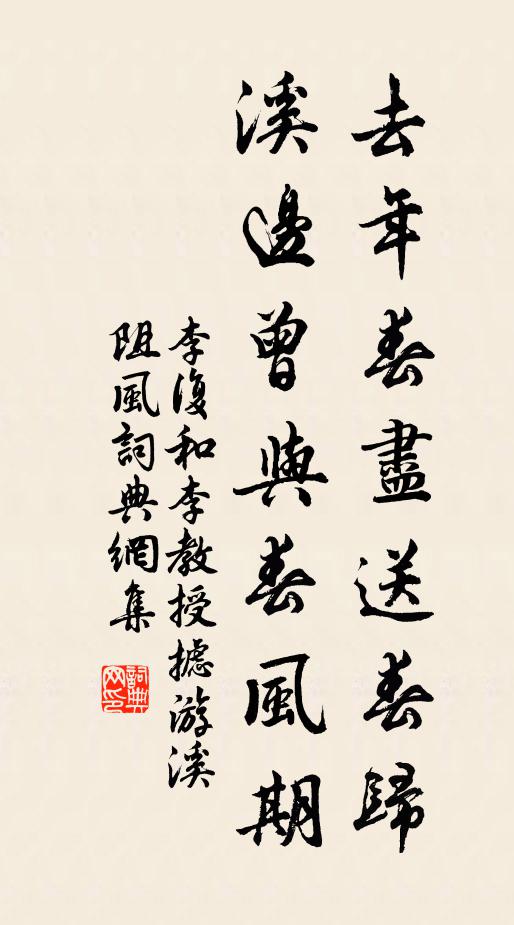 去年春盡送春歸
溪邊曾與春風期
李復和李教授摅游溪
阻風詞典網集
詞典
网印